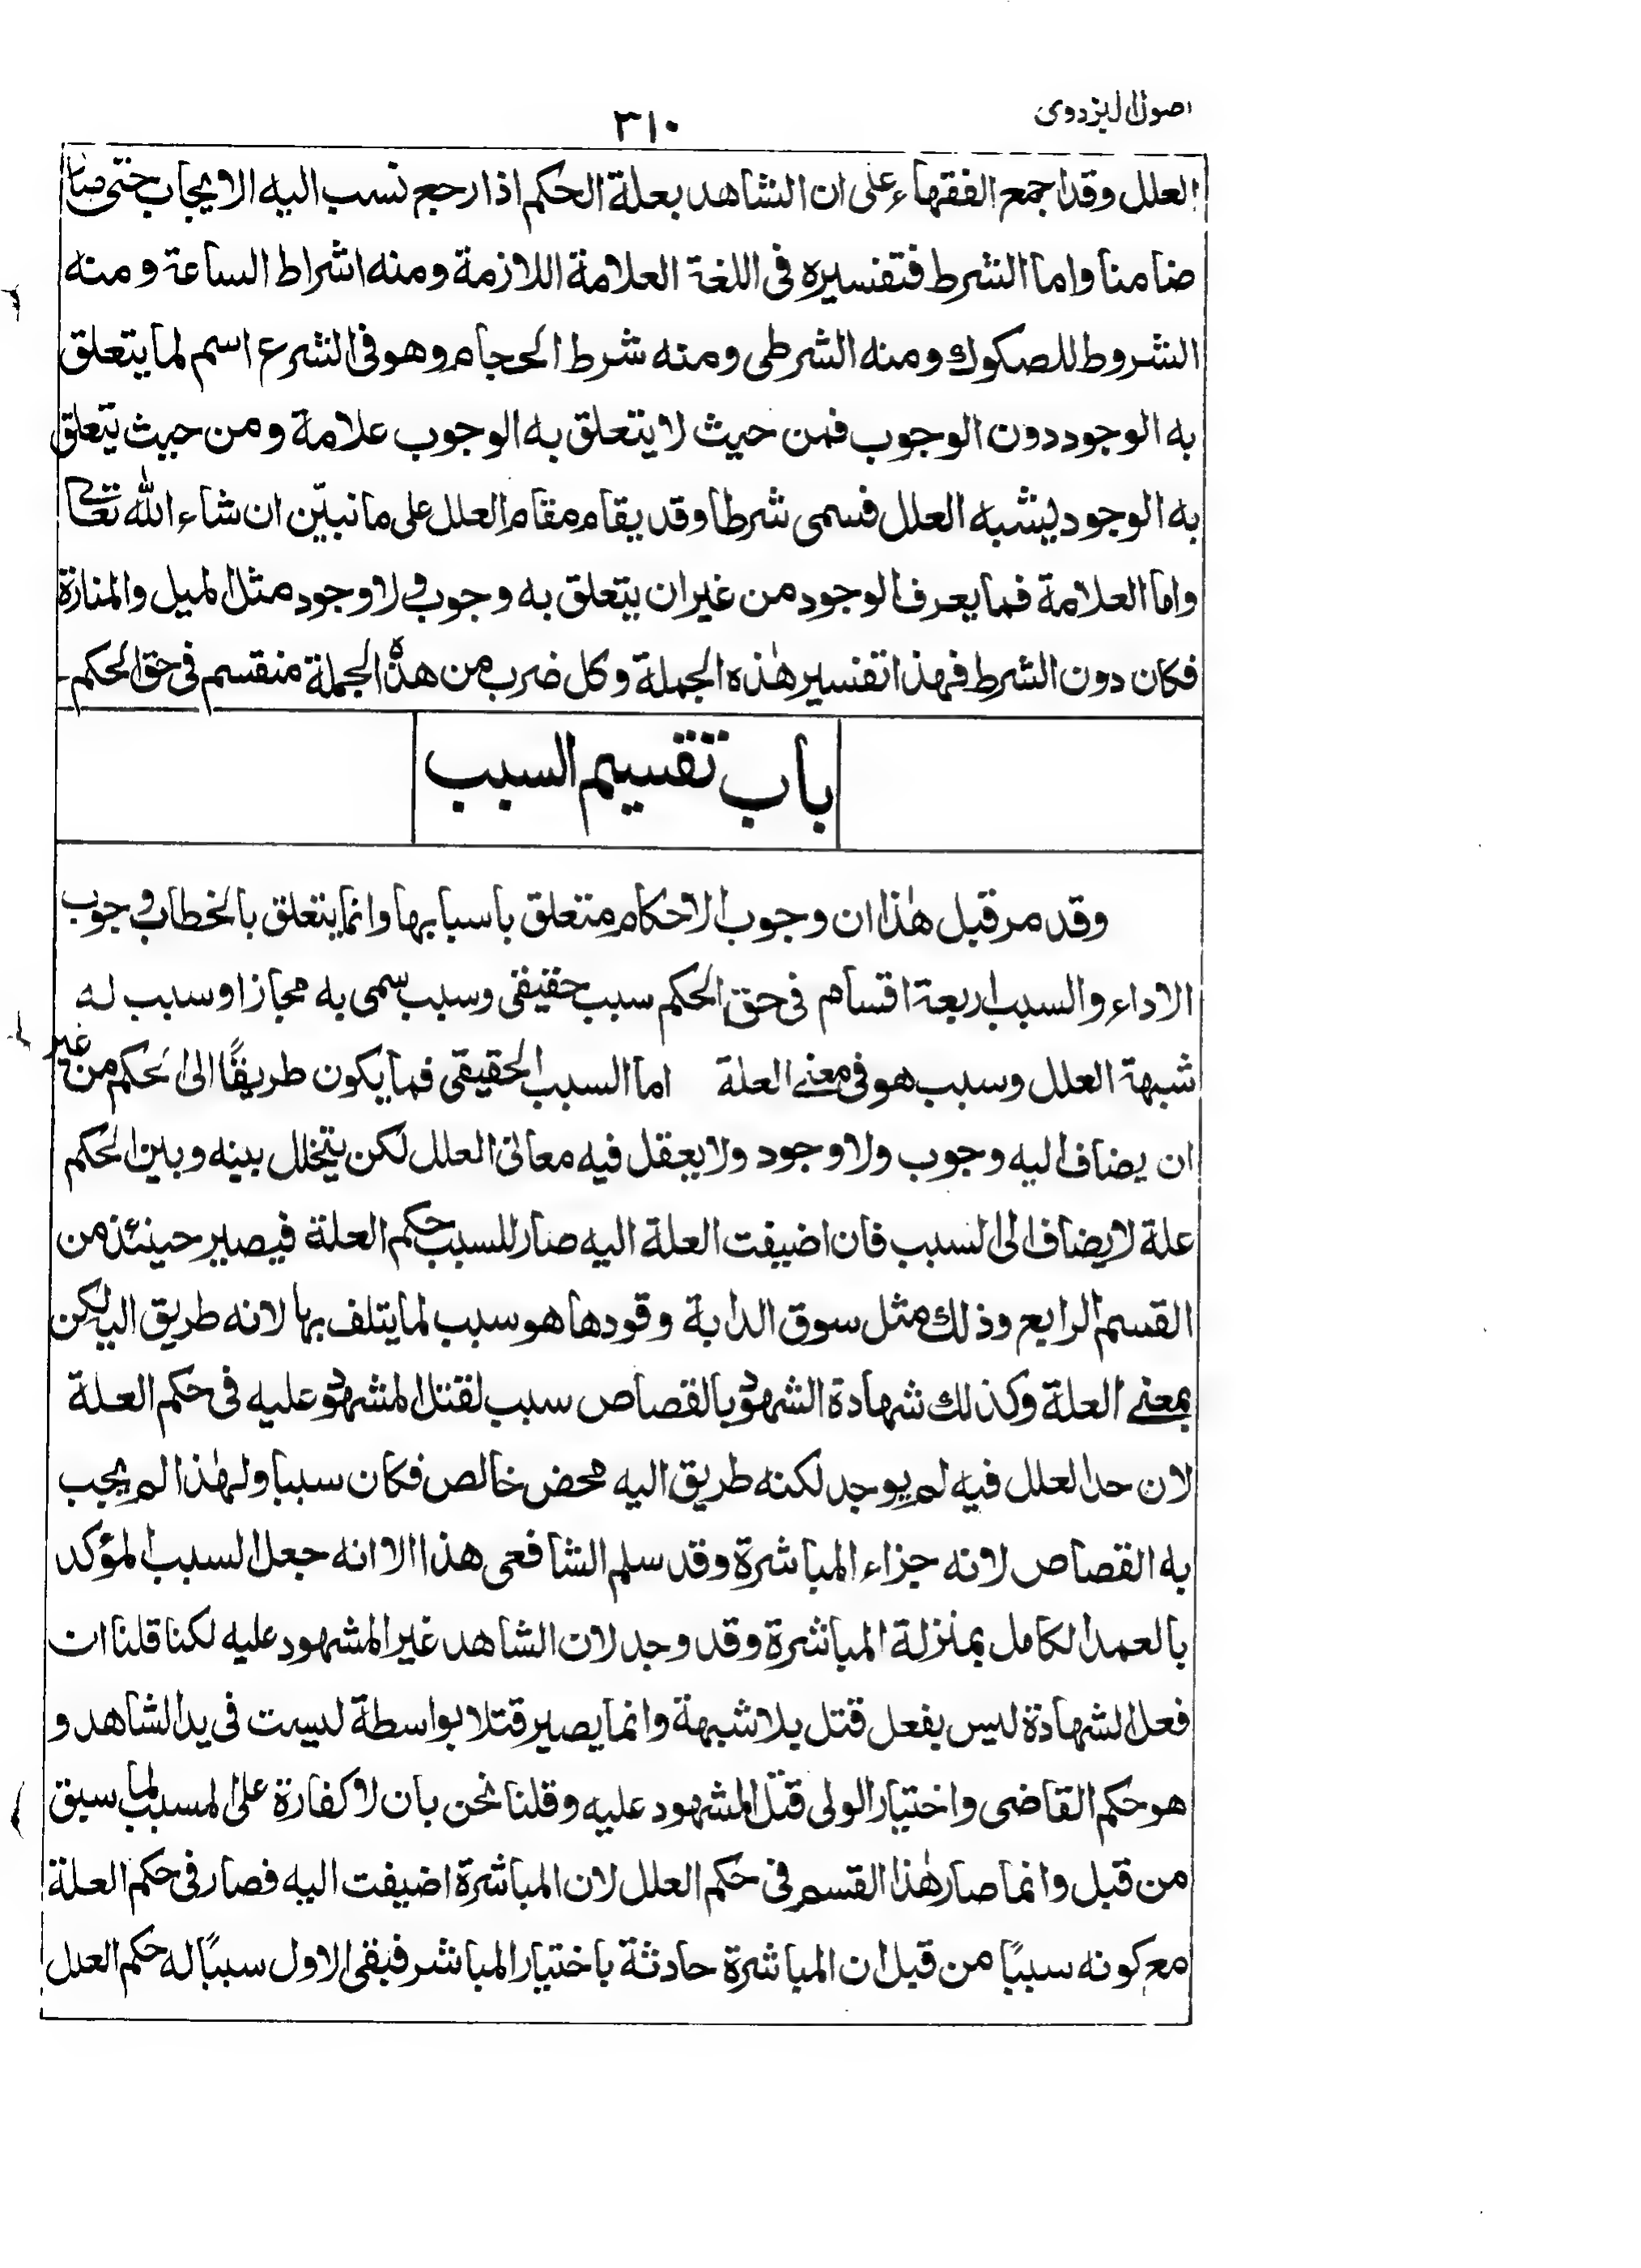 اصول البزدوى
٣١٠
العلل وقد اجمع الفقهاء على ان الشاهد بعلة الحكم اذا رجع نسب اليه الايجاب حتى صار
ضامنا واما الشرط فتفسيره فى اللغة العلامة اللازمة ومنه اشراط الساعة ومنه
الشروط للصكوك ومنه الشرطى ومنه شرط الحجام وهو فى الشرع اسم لما يتعلق
به الوجود دون الوجوب فمن حيث لا يتعلق به الوجوب علامة ومن حيث يتعلق
به الوجود يشبه العلل فسمى شرطا وقد يقام مقام العلل على ما نبيّن ان شاء الله تعالى
واما العلامة فما يعرف الوجود من غير ان يتعلق به وجوب ولا وجود مثل الميل والمنارة
فكان دون الشرط فهذا تفسير هٰذه الجملة وكل ضرب من هذه الجملة منقسم فى حق الحكم
باب تقسيم السبب
وقد مر قبل هٰذا ان وجوب الاحكام متعلق باسبابها وانما يتعلق بالخطاب وجوب
الاداء والسبب اربعة اقسام فى حق الحكم سبب حقيقى وسبب سمى به مجازا وسبب له
شبهة العلل وسبب هو فى معنى العلة اما السبب الحقيقى فما يكون طريقًا الى الحكم من غير
ان يضاف اليه وجوب ولا وجود ولا يعقل فيه معانى العلل لكن يتخلل بينه وبين الحكم
علة لا يضاف الى السبب فان اضيفت العلة اليه صار للسبب حكم العلة فيصير حينئذ من
القسم الرابع وذلك مثل سوق الدابة وقودها هو سبب لما يتلف بها لانه طريق اليه لكن
بمعنى العلة وكذلك شهادة الشهود بالقصاص سبب لقتل المشهود عليه فى حكم العلة
لان حد العلل فيه لم يوجد لكنه طريق اليه محض خالص فكان سببا ولهٰذا لم يجب
به القصاص لانه جزاء المباشرة وقد سلم الشافعى هذا الا انه جعل السبب المؤكد
بالعمد الكامل بمنزلة المباشرة وقد وجد لان الشاهد غير المشهود عليه لكنا قلنا ان
فعل الشهادة ليس بفعل قتل بلا شبهة وانما يصير قتلا بواسطة ليست فى يد الشاهد و
هو حكم القاضى واختيار الولى قتل المشهود عليه وقلنا نحن بان لا كفارة على المسبب لما سبق
من قبل وانما صار هٰذا القسم فى حكم العلل لان المباشرة اضيفت اليه فصار فى حكم العلة
مع كونه سببًا من قبل ان المباشرة حادثة باختيار المباشر فبقى الاول سببًا له حكم العلل